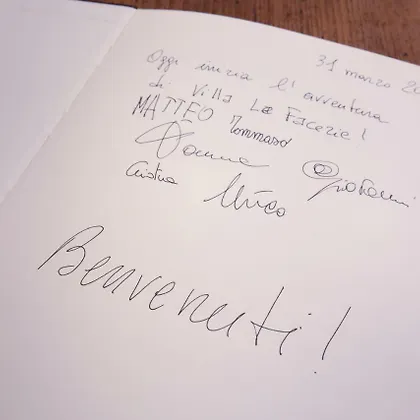 31 marzo 20
Oggi inizia l'avventura
di Villa Le Facezie!
MATTEO Tommaso
Giovanni
Cristina Mirco
Benvenuti!